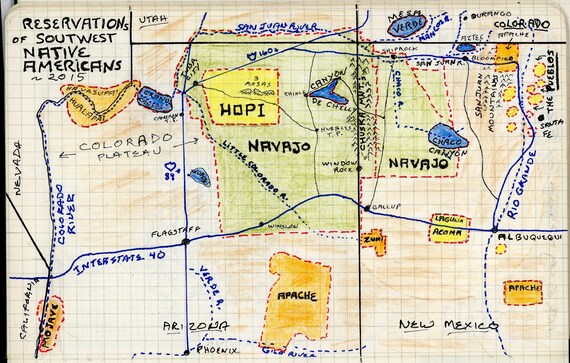 RESERVATIONS
OF SOUTWEST
NATIVE
AMERICANS
~ 2015
UTAH
SAN JUAN RIVER
MESA
VERDE
MANCOS R.
DURANGO
COLORADO
APACHE
AZTEC
BLOOMFIELD
SHIPROCK
SAN JUAN R.
160
HAVASUPAI
HUALAPAI
GRAND
CANYON
3
MESAS
HOPI
CHINLE
CANYON
DE CHELLY
CHACO R.
SAN JUAN
MOUNTAINS
THE PUEBLOS
SANTA
FE
COLORADO
PLATEAU
HUBBELL
T.P.
CHUSKA MTS.
NAVAJO
NAVAJO
CHACO
CANYON
NEVADA
89
WINDOW
ROCK
LITTLE COLORADO R.
RIO GRANDE
COLORADO
RIVER
GALLUP
LAGUNA
ACOMA
FLAGSTAFF
WINSLOW
ZUNI
ALBUQUERQUE
INTERSTATE 40
VERDE R.
CALIFORNIA
MOJAVE
APACHE
APACHE
ARIZONA
NEW MEXICO
PHOENIX
GILA RIVER